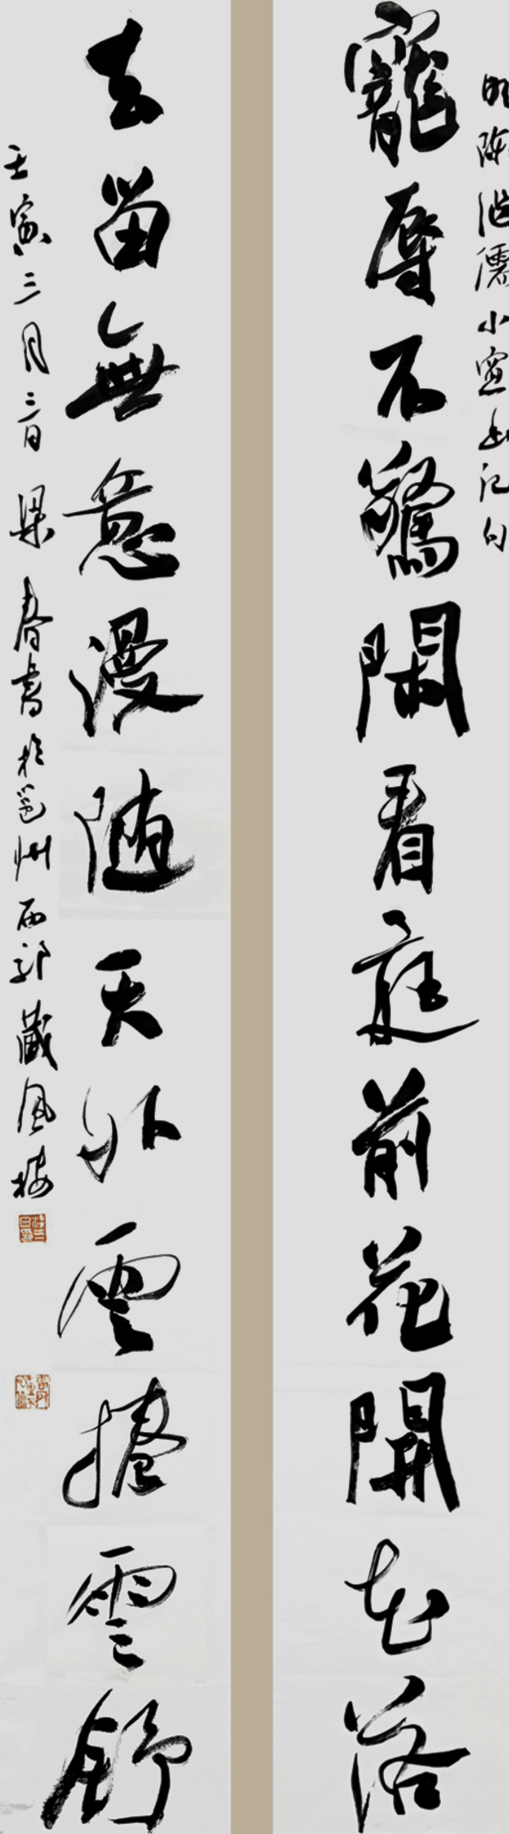 明陳继儒小窓幽记句
寵辱不驚閑看庭前花開花落
去留無意漫随天外雲捲雲舒
壬寅三月三日梁春書於邕州西郭藏風樓